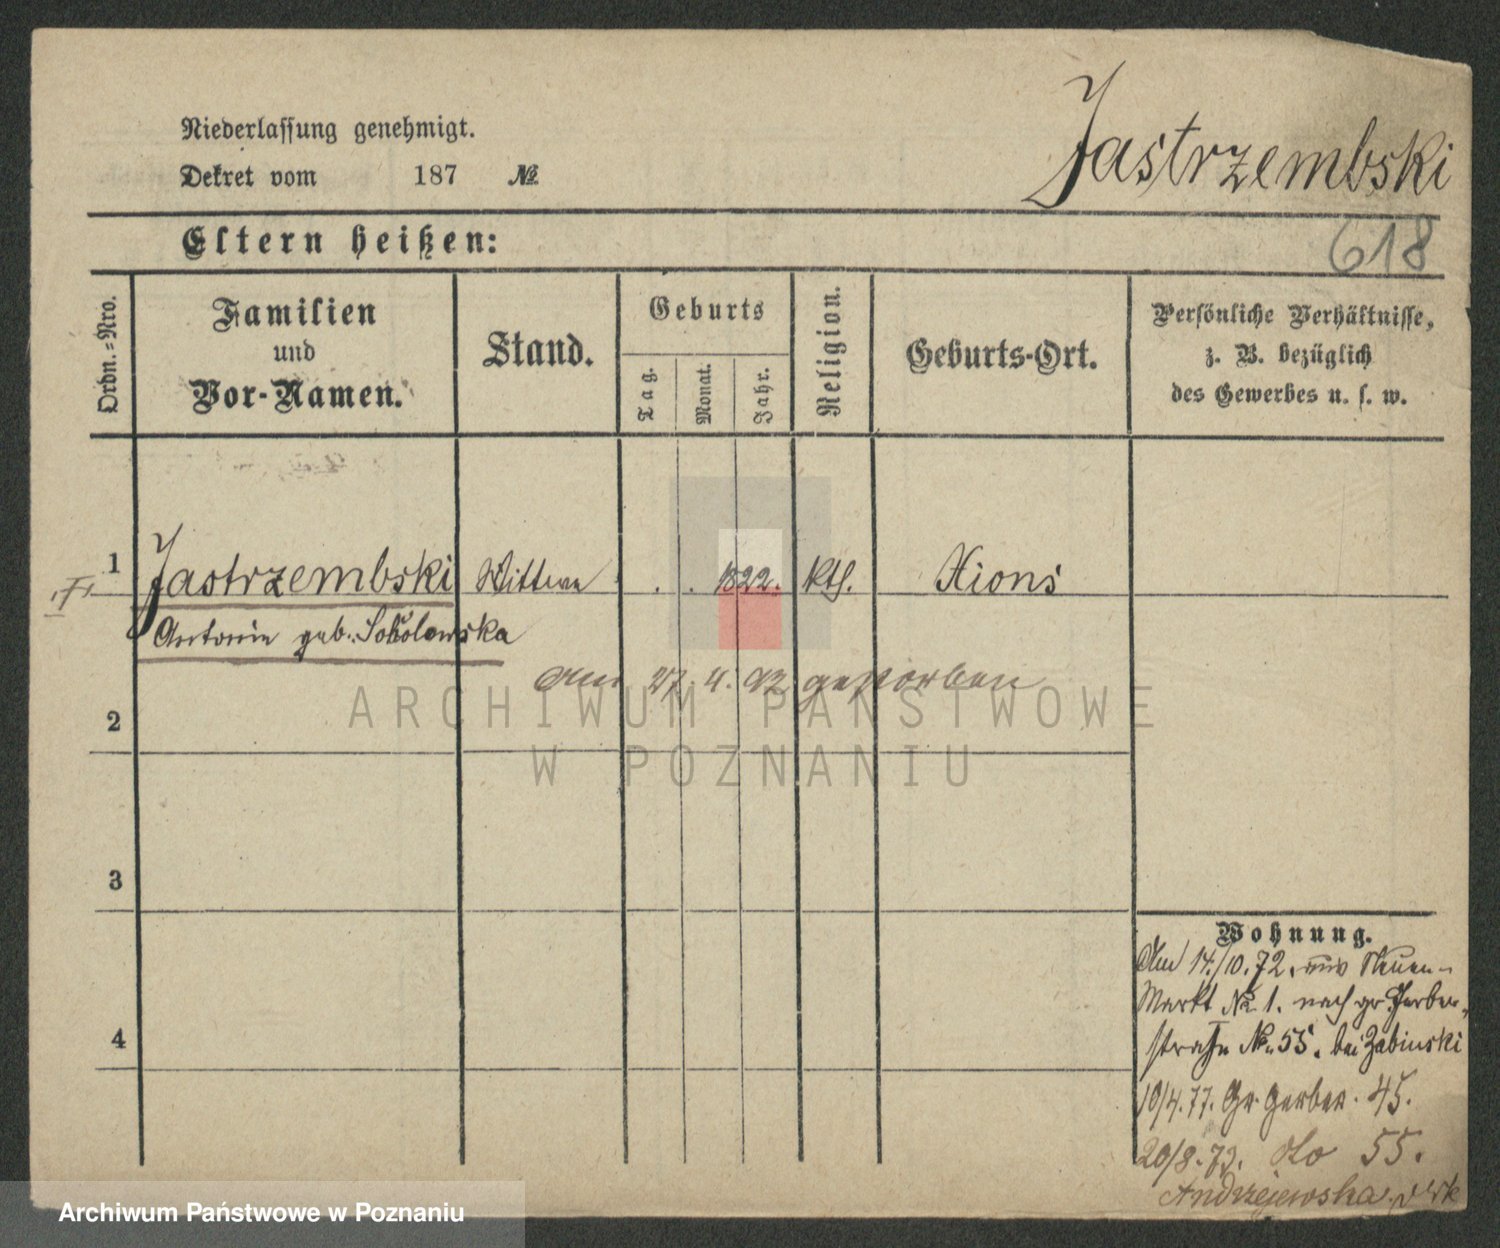 Niederlassung genehmigt.
Dekret vom 187 №
Jastrzembski
618
Eltern heißen:
Ordn.-Nro.
Familien
und
Vor-Namen.
Stand.
Geburts
Tag.
Monat.
Jahr.
Religion.
Geburts-Ort.
Persönliche Verhältnisse,
z. B. bezüglich
des Gewerbes u. s. w.
1
Jastrzembski Wittwe . . 1822. kth. Xions
Antonie geb. Sokolowska
am 27. 4. 92 gestorben
2
ARCHIWUM PAŃSTWOWE
W POZNANIU
3
4
Wohnung.
Am 14./10.72. aus Neuen-
Markt № 1. nach gr. Gerber-
straße No. 55. bei Zabinski
10/4.77. Gr. Gerber. 45.
20/8.79. dto 55.
Andrzejewska
Archiwum Państwowe w Poznaniu